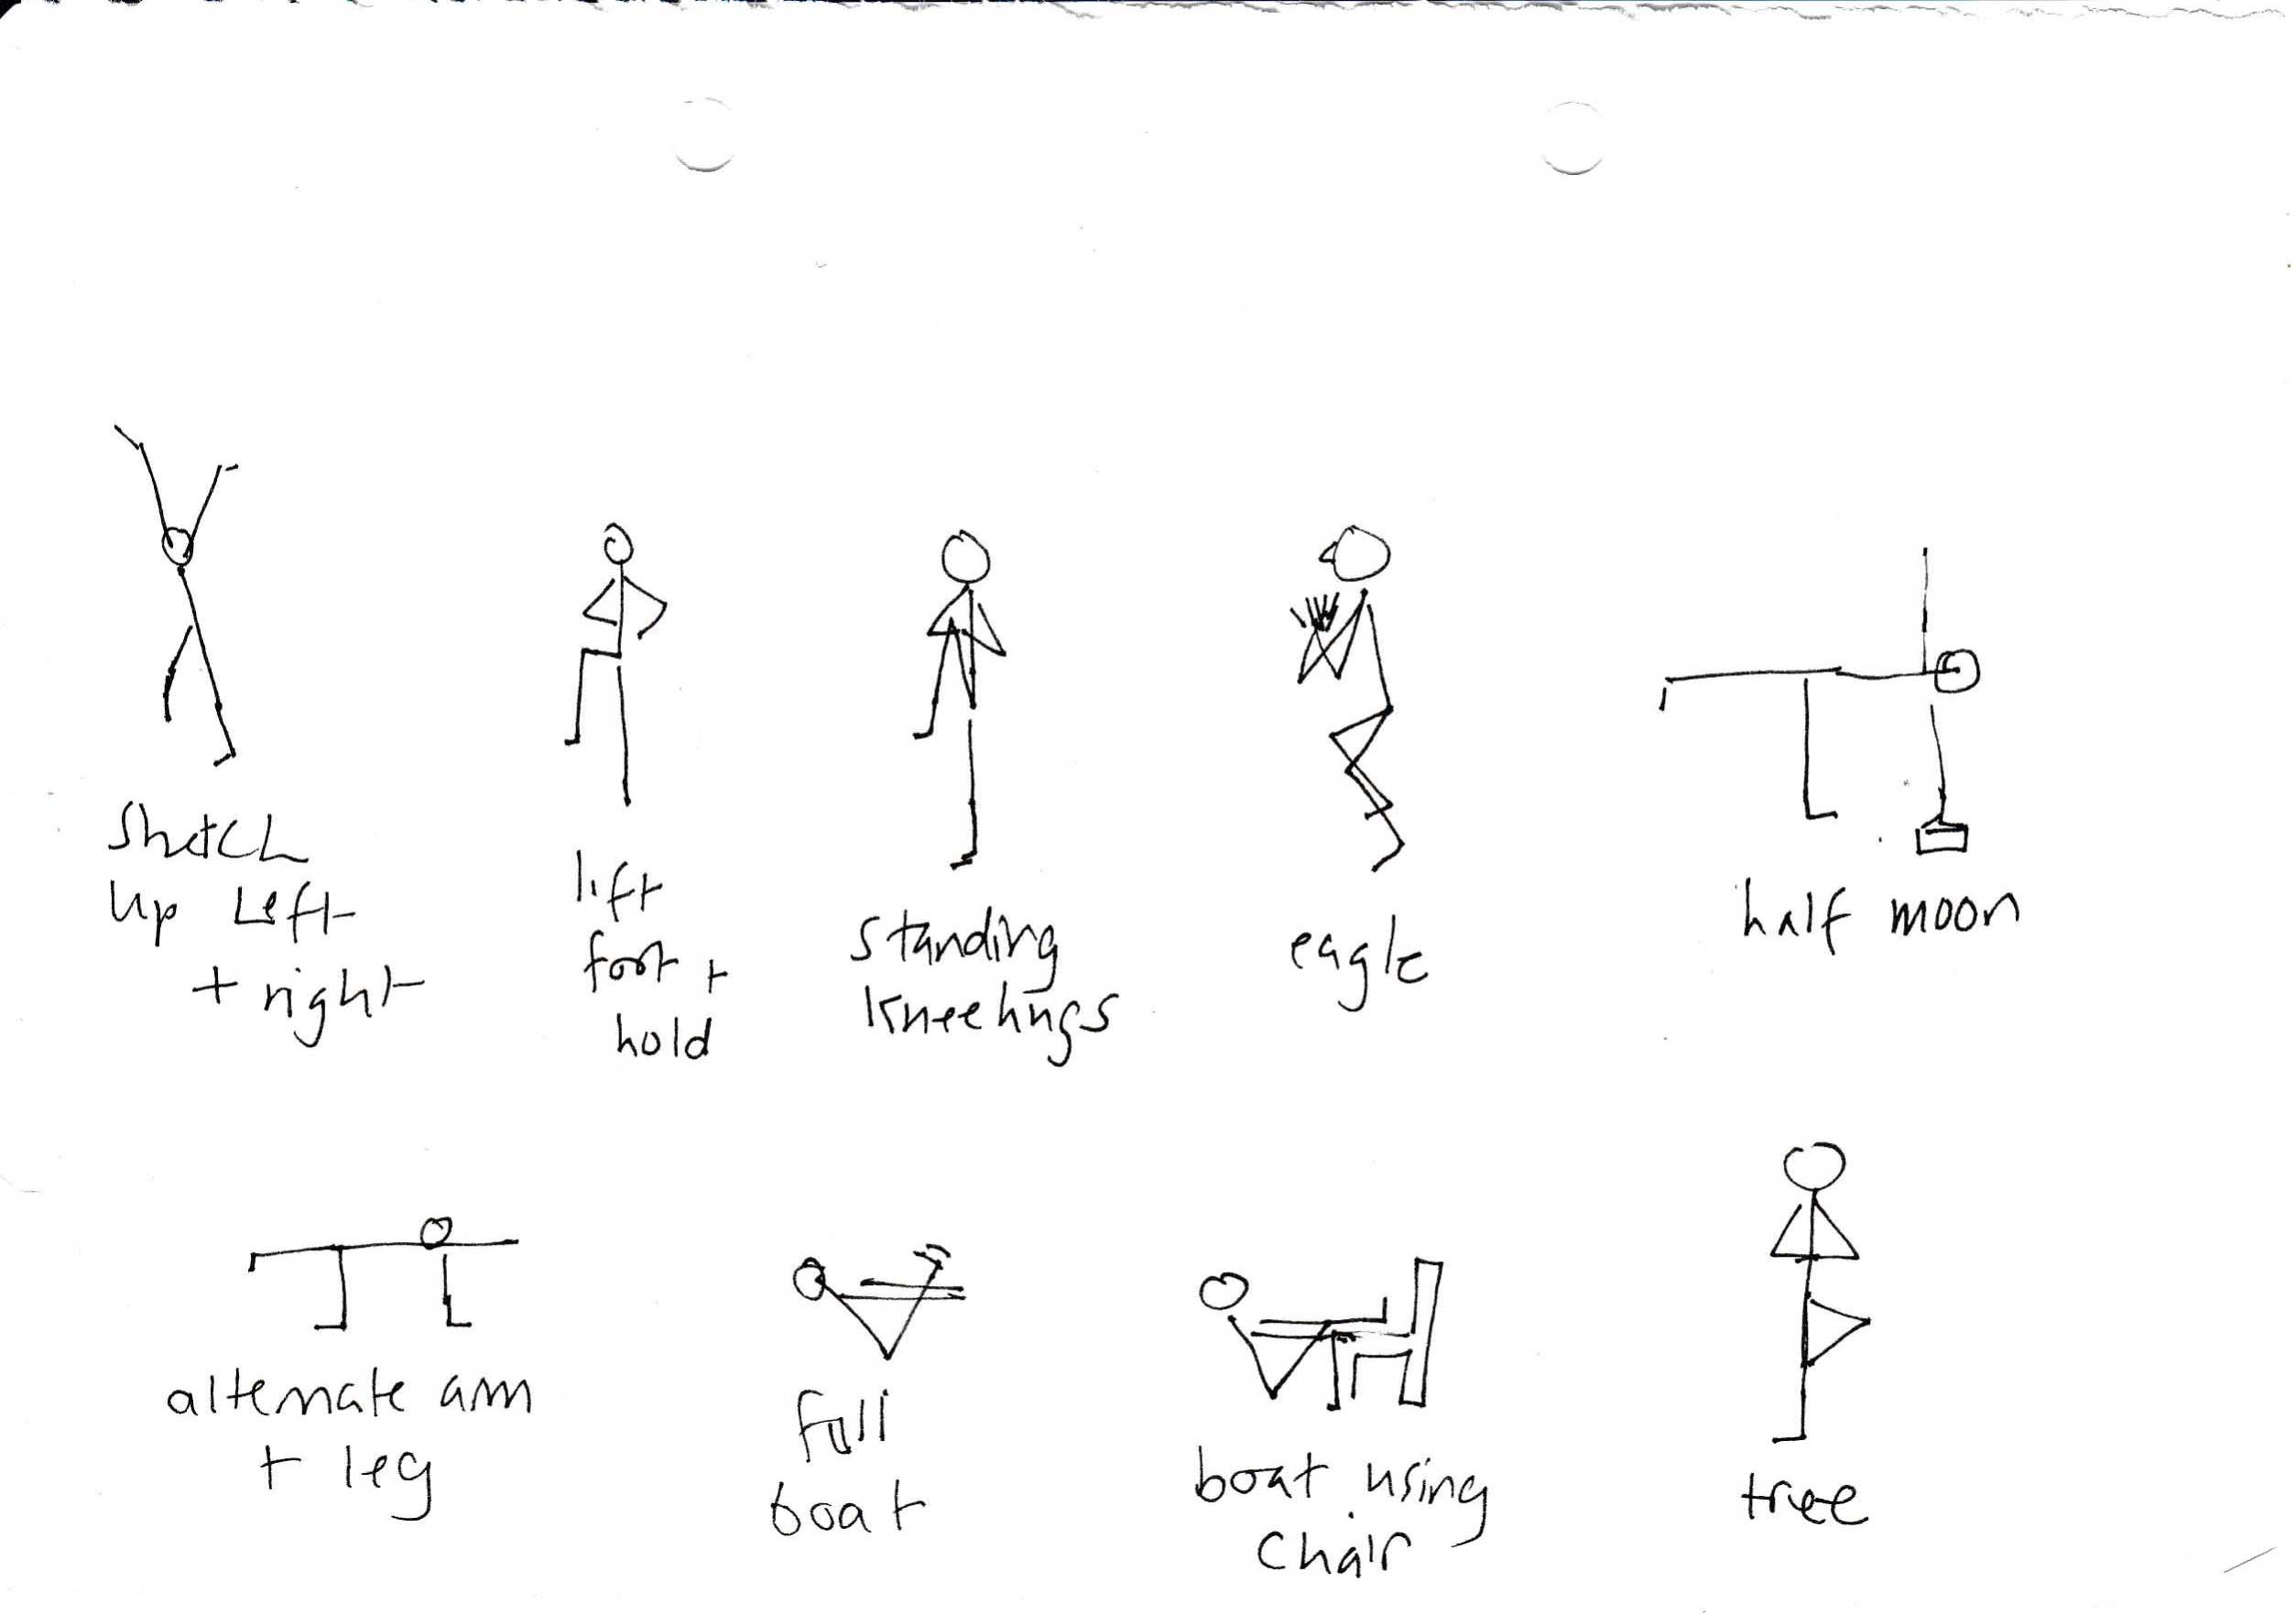 Stretch
up Left
+ right
lift
foot +
hold
standing
kneehugs
eagle
half moon
alternate arm
+ leg
full
boat
boat using
chair
tree